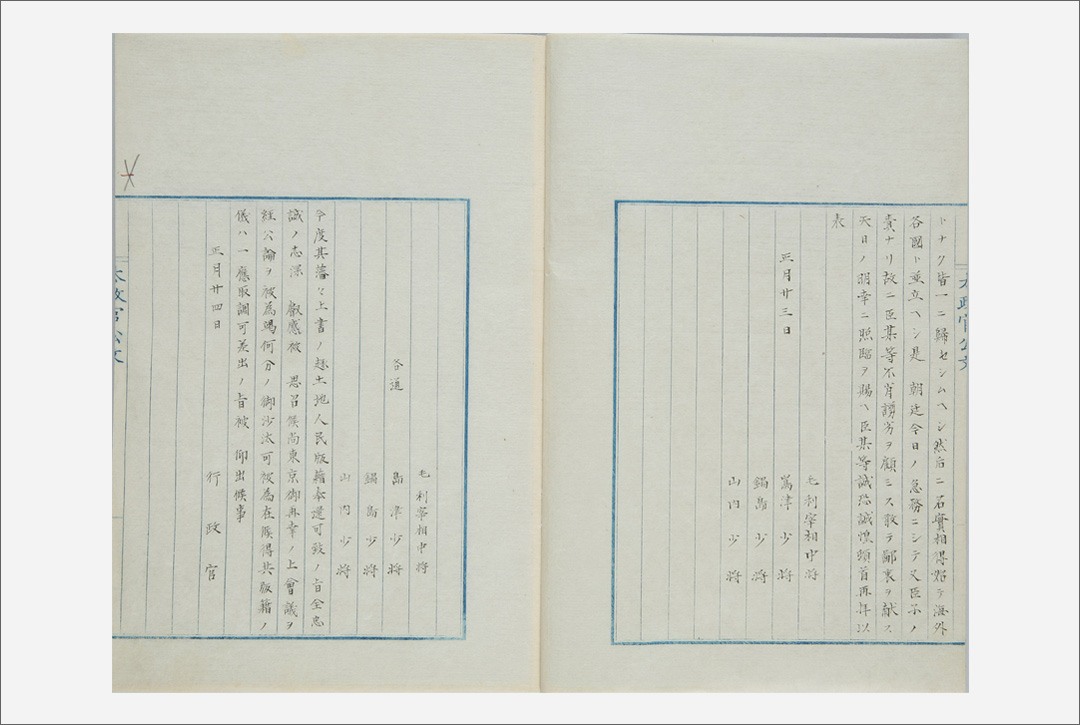 トナク皆一ニ歸セシムヘシ然后ニ名實相得始テ海外
各國ト並立ヘシ是 朝廷今日ノ急務ニシテ又臣子ノ
責ナリ故ニ臣某等不肖謭劣ヲ顧ミス敢テ鄙衷ヲ獻ス
天日ノ明幸ニ照臨ヲ賜ヘ臣某等誠恐誠惶頓首再拜以
表
正月廿三日
毛利宰相中將
嶌津少將
鍋島少將
山内少將
毛利宰相中將
各通 島津少將
鍋島少將
山内少將
今度其藩々上書ノ趣土地人民版籍奉還可致ノ旨全忠
誠ノ志深 叡感被 思召候尚東京御再幸ノ上會議ヲ
経公論ヲ被為竭何分ノ御沙汰可被為在候得共版籍ノ
儀ハ一應取調可差出ノ旨被 仰出候事
正月廿四日 行政官
太政官公文
太政官公文